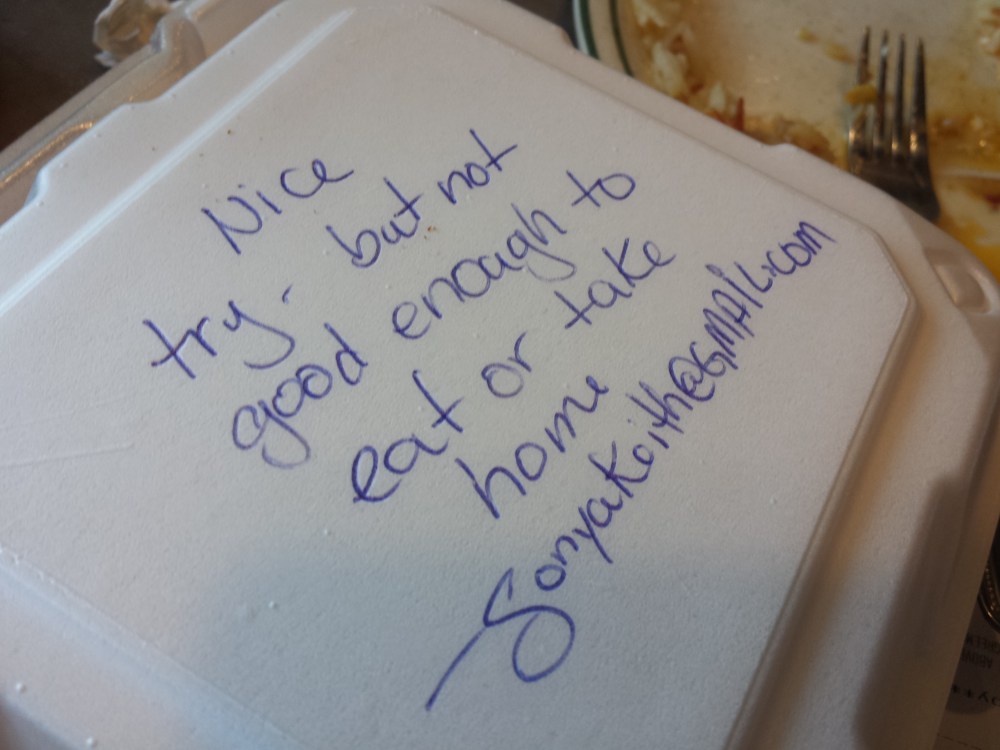 Nice
try. but not
good enough to
eat or take
home
SonyaKeith@GMAIL.com